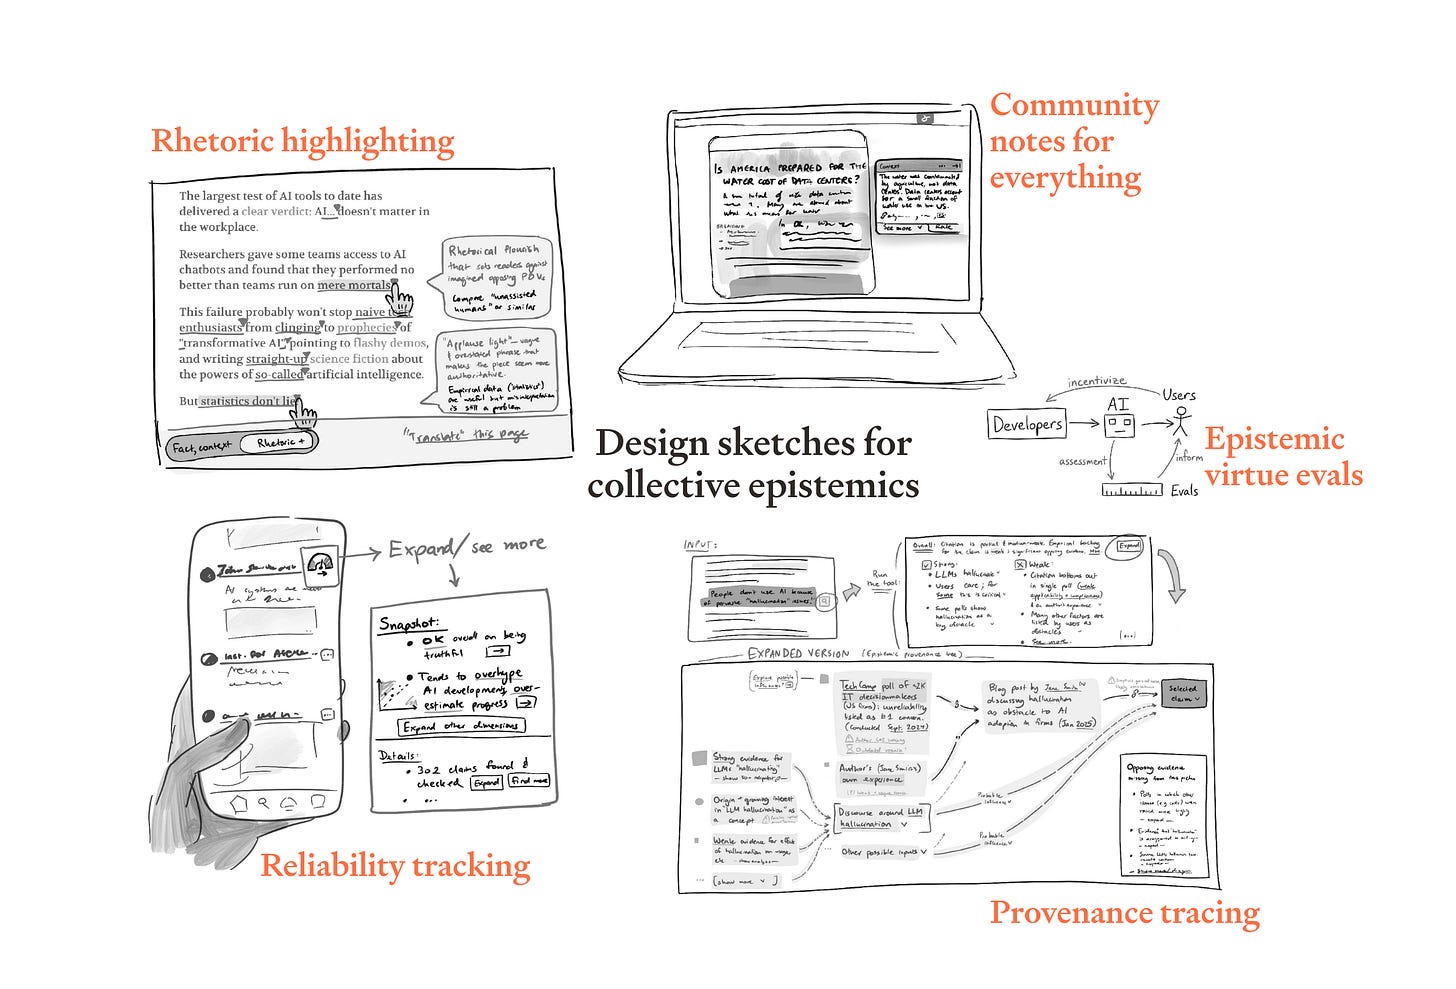 Rhetoric highlighting
The largest test of AI tools to date has
delivered a clear verdict: AI... doesn't matter in
the workplace.
Researchers gave some teams access to AI
chatbots and found that they performed no
better than teams run on mere mortals
This failure probably won't stop naive
enthusiasts from clinging to prophecies of
"transformative AI," pointing to flashy demos,
and writing straight-up science fiction about
the powers of so-called artificial intelligence.
But statistics don't lie
Rhetorical flourish
that sets readers against
imagined opposing POVs
Compare "unassisted
humans" or similar
"Applause light" — vague
& overstated phrase that
makes the piece seem more
authoritative.
Empirical data ("statistics")
are useful but misinterpretation
is still a problem
Fact, context
Rhetoric +
"Translate" this page
Community
notes for
everything
IS AMERICA PREPARED FOR THE
WATER COST OF DATA CENTERS?
Context
The water was contaminated
by agriculture, not data
centers. Data centers account
for a small fraction of
water use in the US.
See more
Rate
Design sketches for
collective epistemics
incentivize
Users
AI
Developers
assessment
inform
Evals
Epistemic
virtue evals
Expand/see more
AI systems are
Snapshot:
OK overall on being
truthful
Tends to overhype
AI developments, over-
estimate progress
Expand other dimensions
Details:
302 claims found &
checked
Expand
Find more
...
Reliability tracking
INPUT:
People don't use AI because
of pervasive "hallucination" issues.
Run
the tool:
Overall: Citation is partial & medium-weak. Empirical backing
for the claim is weak; significant opposing evidence.
Expand
Strong:
LLMs hallucinate
Users care; for
some this is critical
Some polls show
hallucination as a
big obstacle
Weak:
Citation bottoms out
in single poll (weak
applicability + uniqueness)
& in author's experience
Many other factors are
listed by users as
obstacles
See more
[...]
EXPANDED VERSION (Epistemic provenance tree)
Explore possible
influences?
TechCamp poll of <2K
IT decisionmakers
(US firms): unreliability
listed as #1 concern.
(Conducted Sept. 2024)
Blog post by Jane Smith
discussing hallucination
as obstacle to AI
adoption in firms (Jan 2025)
Selected
claim
Strong evidence for
LLMs "hallucinating"
Author's (Jane Smith's)
own experience
Origin + growing interest
in "LLM hallucination" as
a concept
Discourse around LLM
hallucination
Probable
influence
Weak evidence for effect
of hallucination on usage,
etc
Other possible inputs
Probable
influence
[show more ]
Opposing evidence
missing from this picture
Polls in which other
issues (e.g. cost) were
raised more highly
expand
Provenance tracing